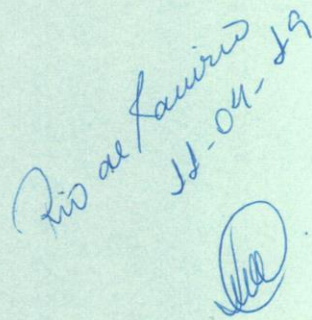 Rio de Janeiro
11-04-89